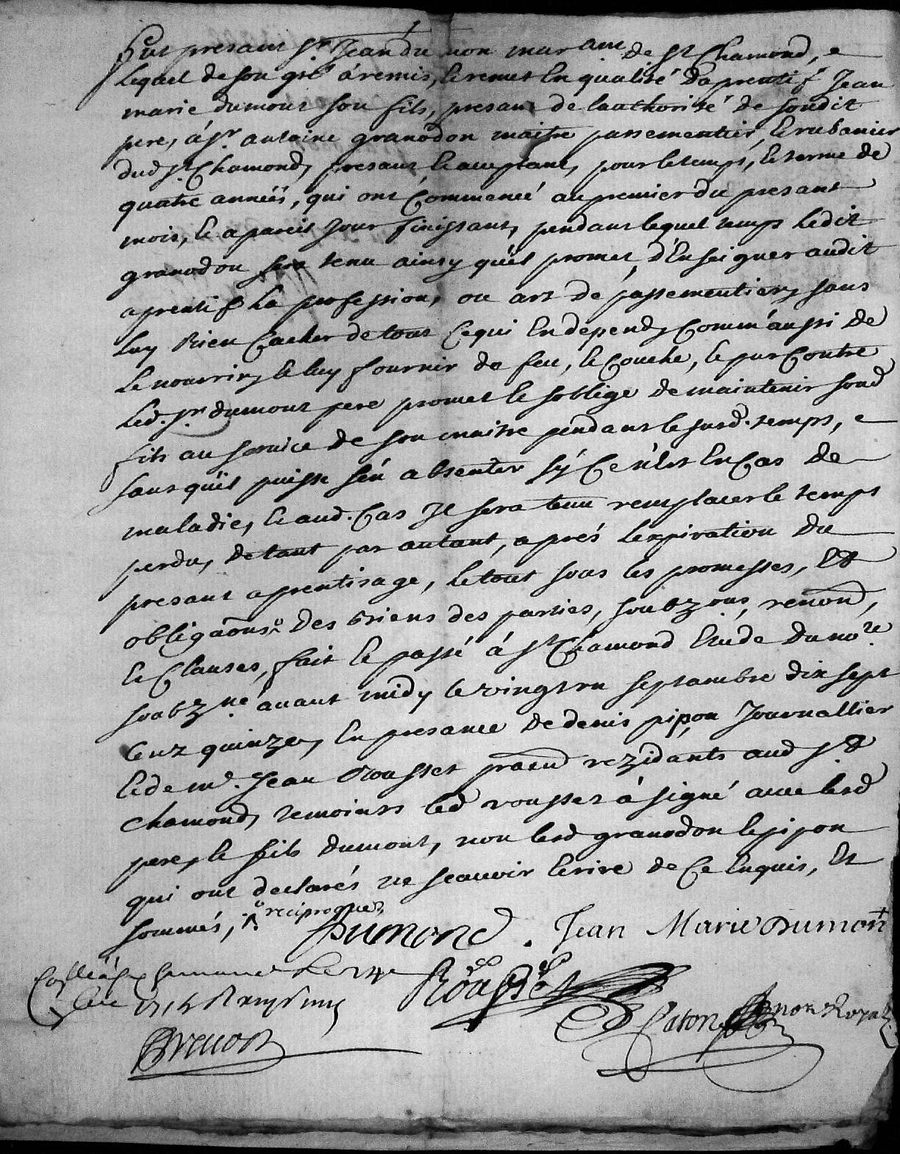 Fut presant Sr. Jean du mon marchant de St Chamond, e
lequel de son gré à remis, le remet En qualité daprentif Jean
marie dumont son fils, presant de lauthorité de sondit
pere, a Sr. antoine granodon maitre passementier, le rubanier
dud. St Chamond, presant, le aceptant, pour le temps, le terme de
quatre années, qui ont Commancé au premier du presant
mois, le a pareil Jour finissant, pendant lequel temps Ledit
granodon sera tenu ainsy quil promet, d'Enseigner audit
aprentif La profession, ou art de passementier, sans
luy Rien Cacher de tout Cequi En depend, Comm'aussi de
Le nourrir, le luy fournir de feu, le Couche, le par Contre
Led. Sr. dumont pere promet le soblige de maintenir sond
fils au service de son maitre pendant le susd. temps, e
sans quil puisse sén absenter sy Ce n'est En Cas de
maladie, le aud. Cas Il sera tenu remplacer le temps
perdu, de tant par autant, aprés lexpiration du
presant aprentisage, le tout sous les promesses, Et
obligaõns, Des biens des parties, soubz ons, renond,
le Clauses, fait le passé à St Chamond Etude du nore
soubz né. avant midy le vingt un septembre dix sept
Centz quinze, En presance de denis pipon Journallier
le de me. Jean Rousset praend rezidants aud St
chamond, temoints led rousset à signé avec lesd
pere, le fils Dumont, non lesd granodon le pipon
qui ont declarés ne scauoir lecrire de Ce Enquis, Et
sommés, reciproques
Dumond. Jean Marie Dumont
Rousset
Brenot